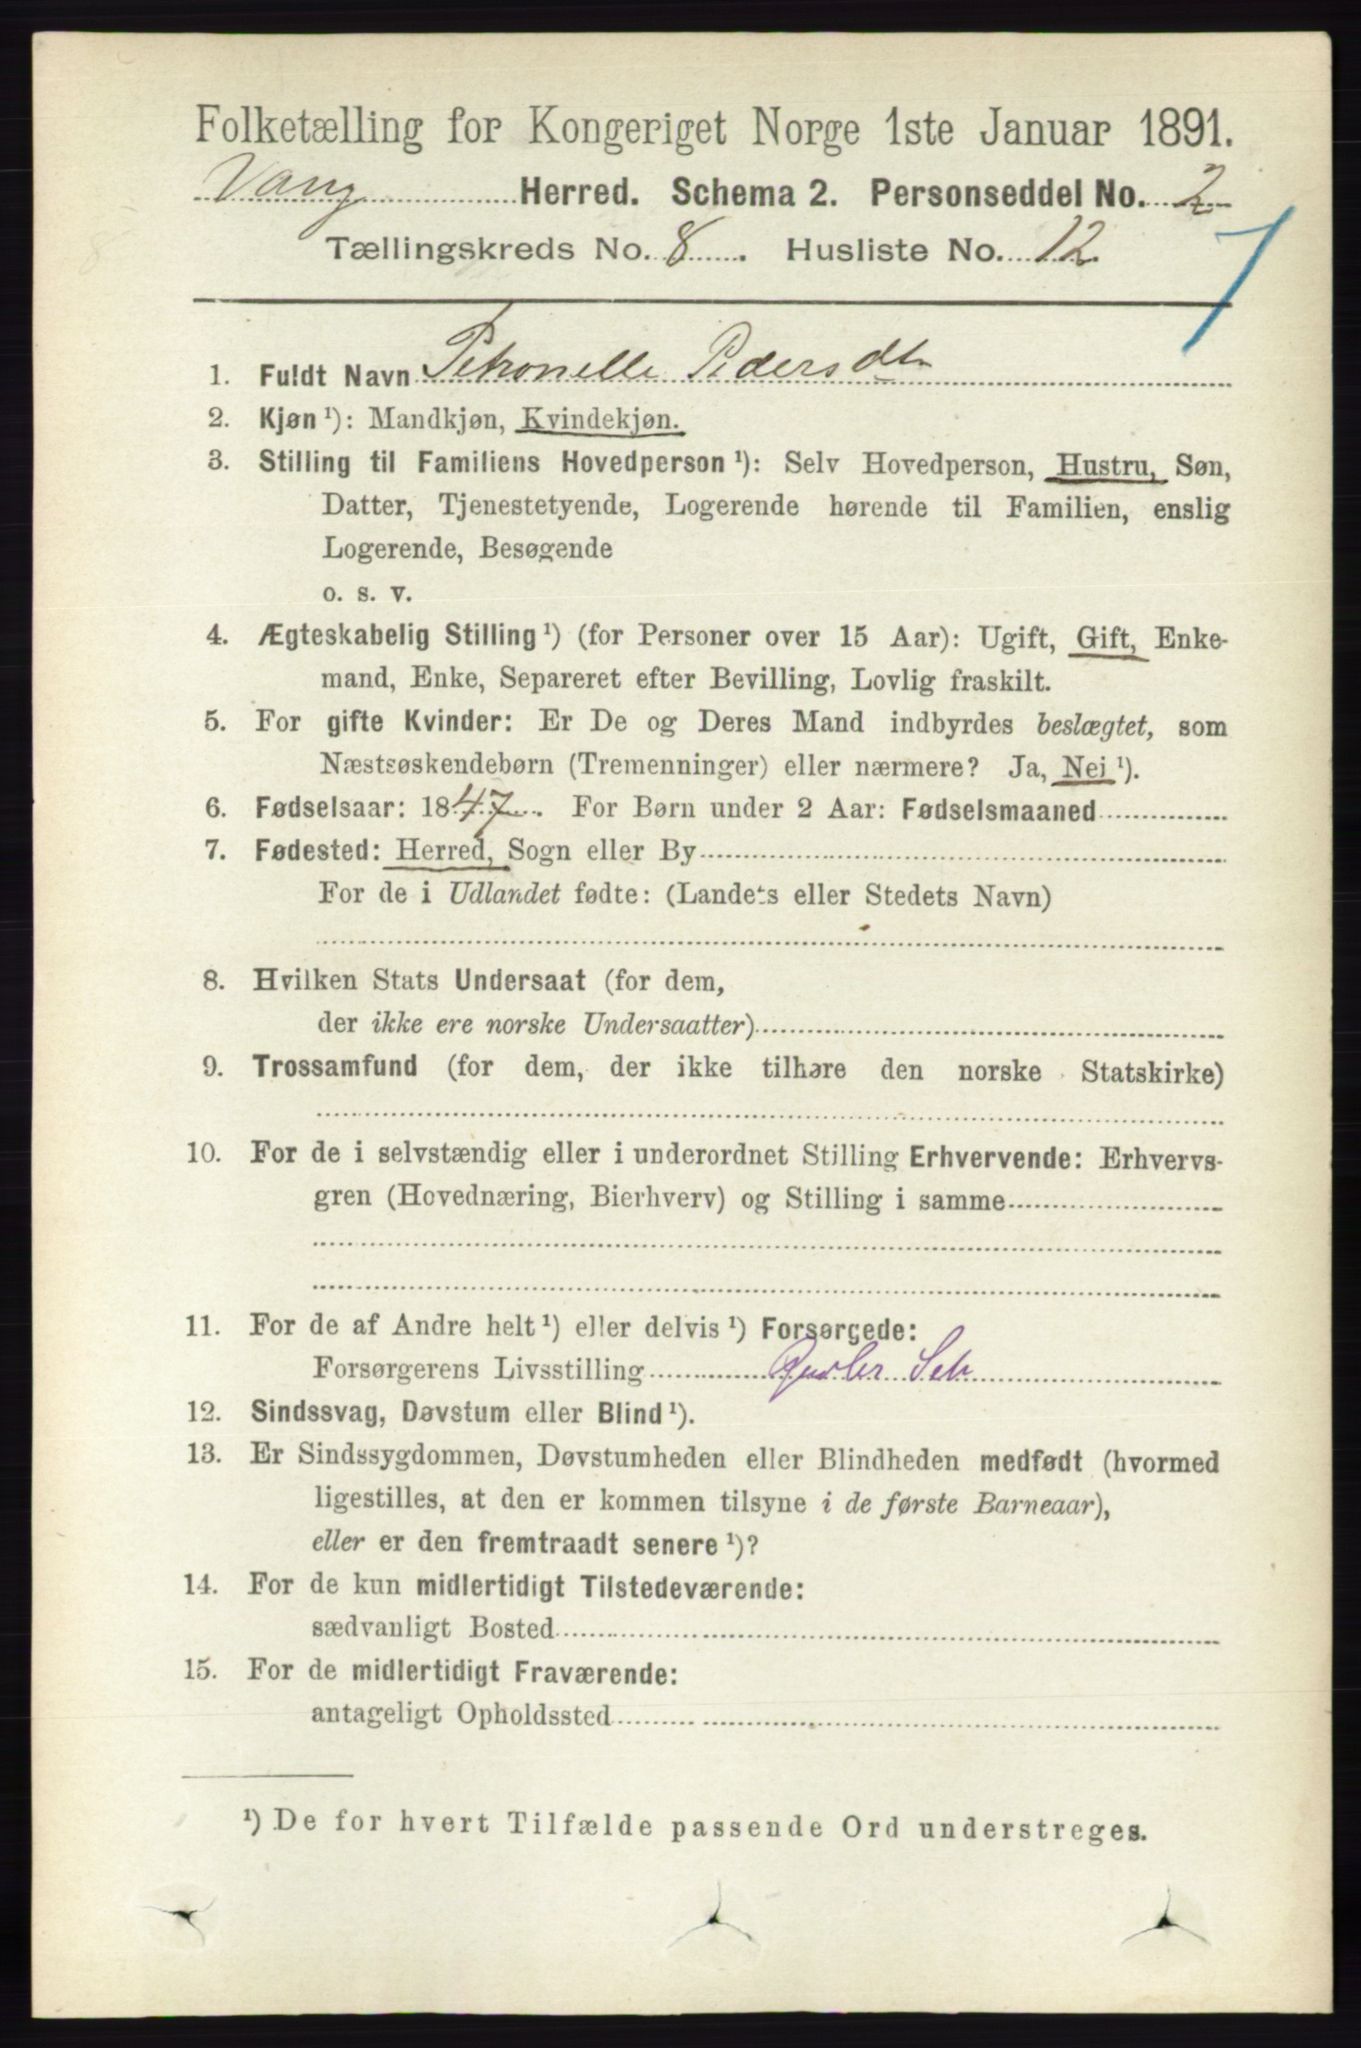 Folketælling for Kongeriget Norge 1ste Januar 1891.
Vang Herred. Schema 2. Personseddel No. 2
Tællingskreds No. 8. Husliste No. 12.
7
1. Fuldt Navn Petronelle Pedersdtr
2. Kjøn ¹): Mandkjøn, Kvindekjøn.
3. Stilling til Familiens Hovedperson ¹): Selv Hovedperson, Hustru, Søn,
Datter, Tjenestetyende, Logerende hørende til Familien, enslig
Logerende, Besøgende
o. s. v.
4. Ægteskabelig Stilling ¹) (for Personer over 15 Aar): Ugift, Gift, Enke-
mand, Enke, Separeret efter Bevilling, Lovlig fraskilt.
5. For gifte Kvinder: Er De og Deres Mand indbyrdes beslægtet, som
Næstsøskendebørn (Tremenninger) eller nærmere? Ja, Nei ¹).
6. Fødselsaar: 1847. For Børn under 2 Aar: Fødselsmaaned
7. Fødested: Herred, Sogn eller By
For de i Udlandet fødte: (Landets eller Stedets Navn)
8. Hvilken Stats Undersaat (for dem,
der ikke ere norske Undersaatter)
9. Trossamfund (for dem, der ikke tilhøre den norske Statskirke)
10. For de i selvstændig eller i underordnet Stilling Erhvervende: Erhvervs-
gren (Hovednæring, Bierhverv) og Stilling i samme
11. For de af Andre helt ¹) eller delvis ¹) Forsørgede:
Forsørgerens Livsstilling
12. Sindssvag, Døvstum eller Blind ¹).
13. Er Sindssygdommen, Døvstumheden eller Blindheden medfødt (hvormed
ligestilles, at den er kommen tilsyne i de første Barneaar),
eller er den fremtraadt senere ¹)?
14. For de kun midlertidigt Tilstedeværende:
sædvanligt Bosted
15. For de midlertidigt Fraværende:
antageligt Opholdssted
¹) De for hvert Tilfælde passende Ord understreges.